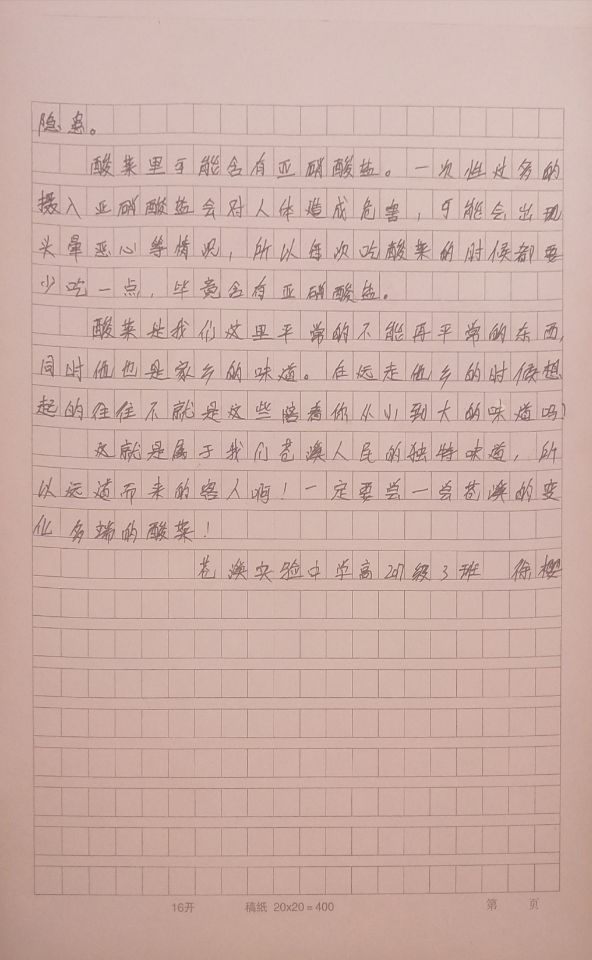 隐患。
酸菜里可能含有亚硝酸盐。一次性过多的
摄入亚硝酸盐会对人体造成危害，可能会出现
头晕恶心等情况，所以每次吃酸菜的时候都要
少吃一点，毕竟含有亚硝酸盐。
酸菜是我们这里平常的不能再平常的东西，
同时他也是家乡的味道。在远走他乡的时候想
起的往往不就是这些陪着你从小到大的味道吗？
这就是属于我们苍溪人民的独特味道，所
以远道而来的客人啊！一定要尝一尝苍溪的变
化多端的酸菜！
苍溪实验中学高2017级3班 徐樱
16开 稿纸 20x20=400 第 页